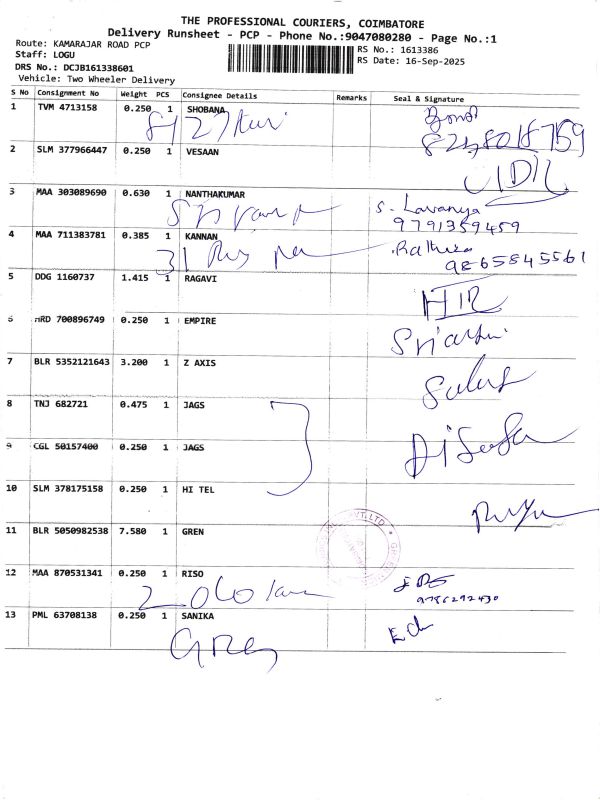 THE PROFESSIONAL COURIERS, COIMBATORE
Delivery Runsheet - PCP - Phone No.:9047080280 - Page No.:1
Route: KAMARAJAR ROAD PCP
Staff: LOGU
DRS No.: DCJB161338601
Vehicle: Two Wheeler Delivery
RS No.: 1613386
RS Date: 16-Sep-2025
S No Consignment No Weight PCS Consignee Details Remarks Seal & Signature
1 TVM 4713158 0.250 1 SHOBANA
2 SLM 377966447 0.250 1 VESAAN
3 MAA 303089690 0.630 1 NANTHAKUMAR
S. Lavanya
9791359459
4 MAA 711383781 0.385 1 KANNAN
9865845561
5 DDG 1160737 1.415 1 RAGAVI
6 HRD 700896749 0.250 1 EMPIRE
7 BLR 5352121643 3.200 1 Z AXIS
8 TNJ 682721 0.475 1 JAGS
9 CGL 50157400 0.250 1 JAGS
10 SLM 378175158 0.250 1 HI TEL
11 BLR 5050982538 7.580 1 GREN
12 MAA 870531341 0.250 1 RISO
13 PML 63708138 0.250 1 SANIKA